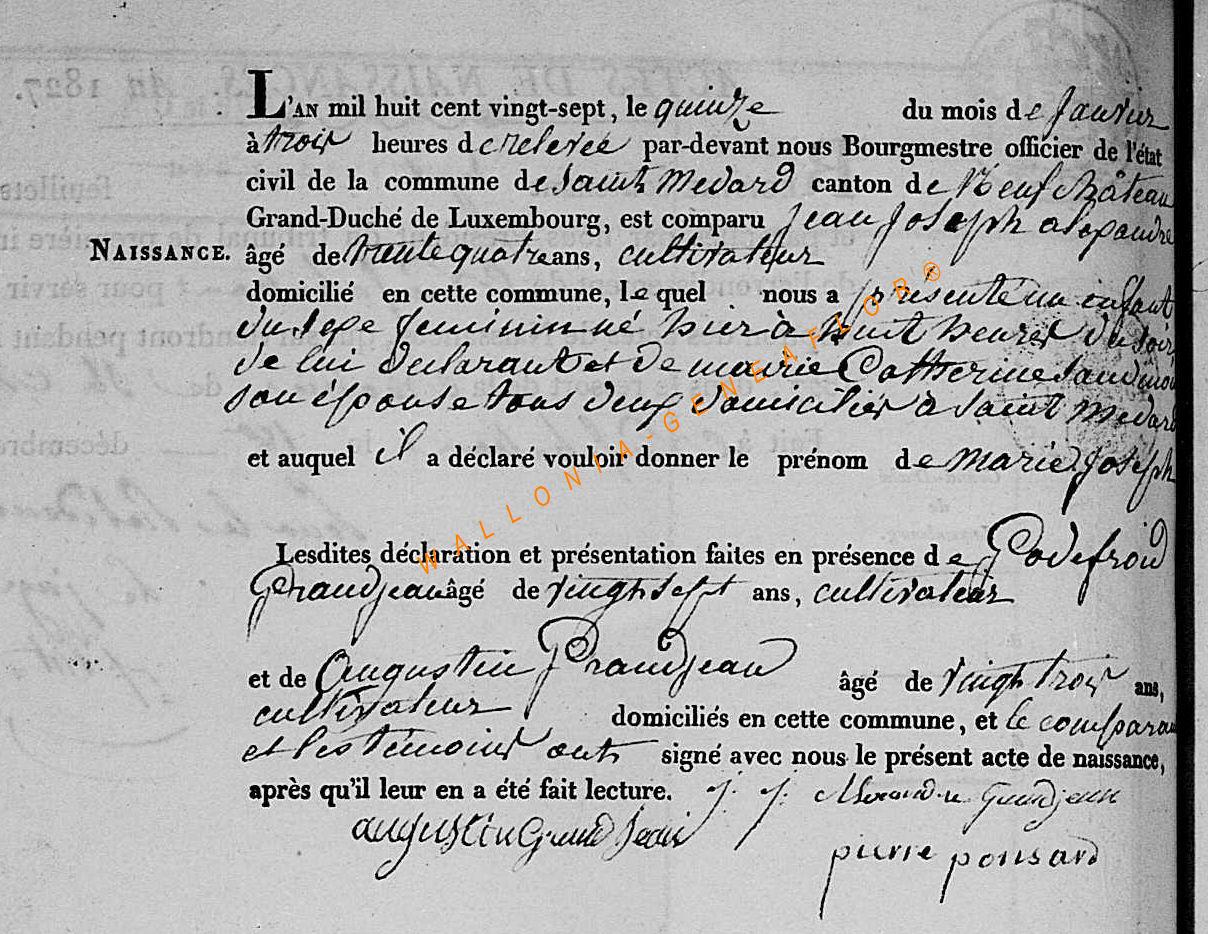 L'AN mil huit cent vingt-sept, le quinze du mois de Janvier
à trois heures de relevée par-devant nous Bourgmestre officier de l'état
civil de la commune de Saint Medard canton de Neufchâteau
Grand-Duché de Luxembourg, est comparu Jean Joseph alexandre
NAISSANCE. âgé de trente quatre ans, cultivateur
domicilié en cette commune, le quel nous a présenté un enfant
du sexe feminin né hier à huit heures du soir
de lui declarant et de marie Catherine
son épouse tous deux domiciliés à Saint Medard
et auquel il a déclaré vouloir donner le prénom de marie Joseph
Lesdites déclaration et présentation faites en présence de Godefroid
Grandjean âgé de vingt sept ans, cultivateur
et de Augustin Grandjean âgé de vingt trois ans,
cultivateur domiciliés en cette commune, et le comparant
et les témoins ont signé avec nous le présent acte de naissance,
après qu'il leur en a été fait lecture. j. j. Alexandre grandjean
augustin Grand Jean
pierre ponsard
WALLONIA-GENEAFLOR®
ACTES DE NAISSANCES. An 1827.